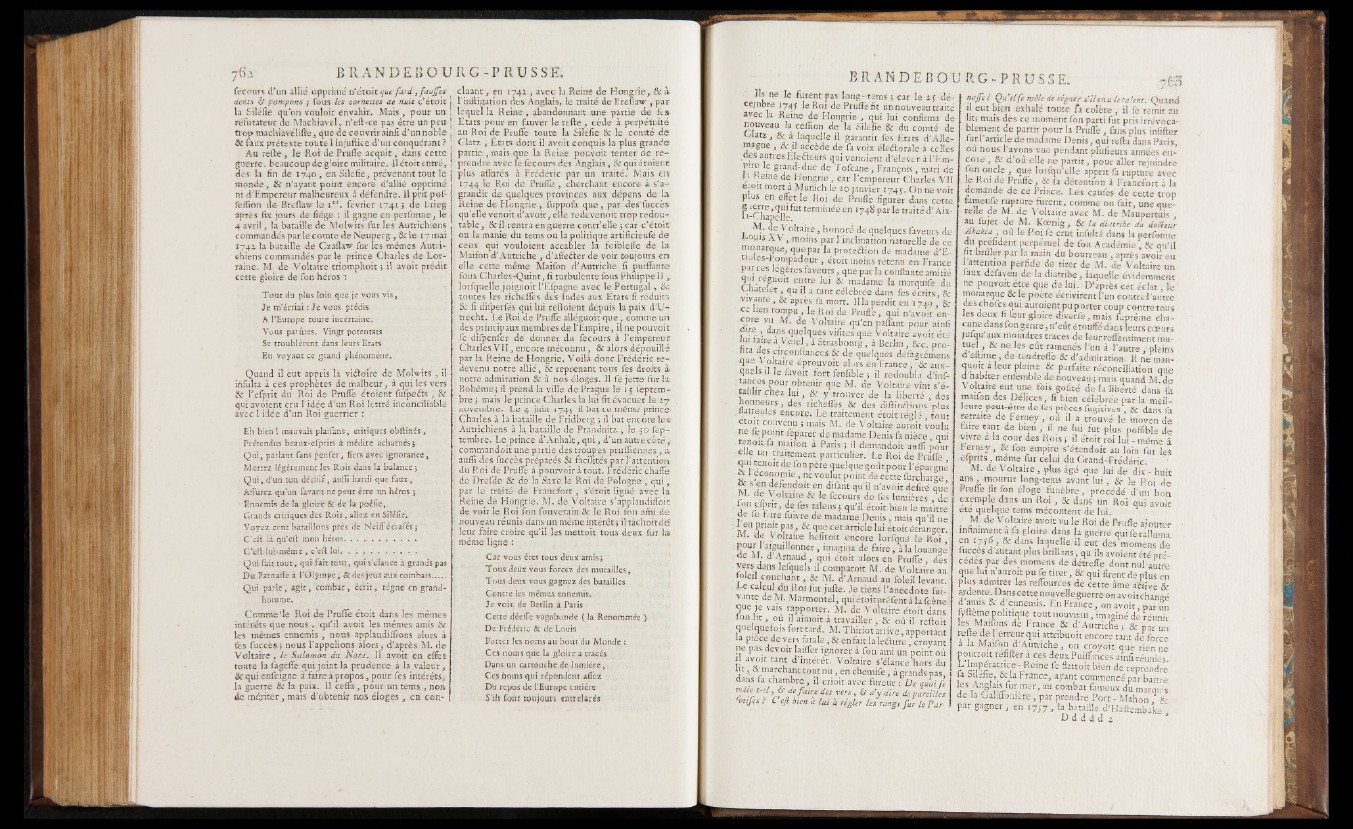 762 BRANDEBOURG-PRUSSE.
ſecours d'un allié opprimé n'étoit que fard, fauſſes
dents & pompons; ſous les cornettes de nuit c'étoit
la Siléſie qu'on vouloit envahir. Mais, pour un
réfutateur de Machiavel, n'eſt-ce pas être un peu
trop machiavéliſte, que de couvrir ainſi d'un noble
& faux prétexte toute l'injuſtice d'un conquérant?
Au reſte, le Roi de Pruſſe acquit, dans cette
guerre, beaucoup de gloire militaire. Il étoit entré,
dès la fin de 1740, en Siléſie, prévenant tout le
monde, & n'ayant point encore d'allié opprimé
ni d'Empereur malheureux à défendre. Il prit poſ-
ſeſſion de Breſlaw le 1er. février 1741; de Brieg
après ſix jours de ſiége: il gagne en perſonne, le
4 avril, la bataille de Molwits ſur les Autrichiens
commandés par le comte de Neuperg, & le 17 mai
1742 la bataille de Czaſlaw ſur les mêmes Autri-
chiens commandés par le prince Charles de Lor-
raine. M. de Voltaire triomphoit; il avoit prédit
cette gloire de ſon héros:
Tout du plus loin que je vous vis,
Je m'écriai: Je vous prédis
A l'Europe toute incertaine.
Vous parûtes. Vingt potentats
Se troublèrent dans leurs Etats
En voyant ce grand phénomène.
Quand il eut appris la victoire de Molwits, il
inſulta à ces prophètes de malheur, à qui les vers
& l'eſprit du Roi de Pruſſe étoient ſuſpects, &
qui avoient cru l'idée d'un Roi lettré inconciliable
avec l'idée d'un Roi guerrier:
Eh bien! mauvais plaiſans, critiques obſtinés,
Prétendus beaux-eſprits à médire acharnés;
Qui, parlant ſans penſer, fiers avec ignorance,
Mettez légérement les Rois dans la balance;
Qui, d'un ton déciſif, auſſi hardi que faux,
Aſſurez qu'un ſavant ne peut être un héros;
Ennemis de la gloire & de la poéſie,
Grands critiques des Rois, allez en Siléſie.
Voyez cent bataillons près de Neiſſ écraſés;
C'eſt là qu'eſt mon héros. . . . . . . . . .
C'eſt lui-même, c'eſt lui. . . . . . . . . .
Qui fait tout, qui ſait tout, qui s'élance à grands pas
Du Parnaſſe à l'Olympe, & des jeux aux combats.....
Qui parle, agit, combat, écrit, règne en grand-
homme.
Comme le Roi de Pruſſe étoit dans les mêmes
intérêts que nous, qu'il avoit les mêmes amis &
les mêmes ennemis, nous applaudiſſions alors à
ſes ſuccès; nous l'appelions alors, d'après M. de
Voltaire, le Salomon du Nord. Il avoit en effet
toute la ſageſſe qui joint la prudence à la valeur,
& qui enſeigne à faire à propos, pour ſes intérêts,
la guerre & la paix. Il ceſſa, pour un tems, non
de mériter, mais d'obtenir nos éloges, en con-
cluant, en 1742, avec la Reine de Hongrie, & à
l'inſtigation des Anglais, le traité de Breſlaw, par
lequel la Reine, abandonnant une partie de ſes
Etats pour en ſauver le reſte, cède à perpétuité
au Roi de Pruſſe toute la Siléſie & le comté de
Glatz, Etats dont il avoit conquis la plus grande
partie, mais que la Reine pouvoit tenter de re-
prendre avec le ſecours des Anglais, & qui étoient
plus aſſurés à Frédéric par un traité. Mais en
1744 le Roi de Pruſſe, cherchant encore à s'a-
grandir de quelques provinces aux dépens de la
Reine de Hongrie, ſuppoſa que, par des ſuccès
qu'elle venoit d'avoir, elle redevenoit trop redou-
table, & il rentra en guerre contr'elle; car c'étoit
ou la manie du tems ou la politique artificieuſe de
ceux qui vouloient accabler la foibleſſe de la
Maiſon d'Autriche, d'affecter de voir toujours en
elle cette même Maiſon d'Autriche ſi puiſſante
ſous Charles-Quint, ſi turbulente ſous Philippe II,
lorſqu'elle joignoit l'Eſpagne avec le Portugal, &
toutes les richeſſes des Indes aux Etats ſi réduits
& ſi diſperſés qui lui reſtoient depuis la paix d'U-
trecht. Le Roi de Pruſſe alléguoit que, comme un
des principaux membres de l'Empire, il ne pouvoit
ſe diſpenſer de donner du ſecours à l'empereur
Charles VII, encore méconnu, & alors dépouillé
par la Reine de Hongrie. Voilà donc Frédéric re-
devenu notre allié, & reprenant tous ſes droits à
notre admiration & à nos éloges. Il ſe jette ſur la
Bohême; il prend la ville de Prague le 15 ſeptem-
bre; mais le prince Charles la lui fit évacuer le 27
novembre. Le 4 juin 1745 il bat ce même prince
Charles à la bataille de Fridberg; il bat encore les
Autrichiens à la bataille de Prandnitz, le 30 ſep-
tembre. Le prince d'Anhalt, qui, d'un autre côté,
commandoit une partie des troupes pruſſiennes, a
auſſi des ſuccès préparés & facilités par l'attention
du Roi de Pruſſe à pourvoir à tout. Frédéric chaſſe
de Dreſde & de la Saxe le Roi de Pologne, qui,
par le traité de Francfort, s'étoit ligué avec la
Reine de Hongrie. M. de Voltaire s'applaudiſſoit
de voir le Roi ſon ſouverain & le Roi ſon ami de
nouveau réunis dans un même intérêt; il tâchoit de
leur faire croire qu'il les mettoit tous deux ſur la
même ligne:
Car vous êtes tous deux amis;
Tous deux vous forcez des murailles,
Tous deux vous gagnez des batailles
Contre les mêmes ennemis.
Je vois de Berlin à Paris
Cette déeſſe vagabonde (la Renommée)
De Frédéric & de Louis
Porter les noms au bout du Monde:
Ces noms que la gloire a tracés
Dans un cartouche de lumière,
Ces noms qui répondent aſſez
Du repos de l'Europe entière
S'ils ſont toujours entrelacés
BRANDEBOURG-PRUSSE. 763
Ils ne le furent pas long-tems; car le 25 dé-
cembre 1745 le Roi de Pruſſe fit un nouveau traité
avec la Reine de Hongrie, qui lui confirma de
nouveau la ceſſion de la Siléſie & du comté de
Glatz, & à laquelle il garantit ſes Etats d'Alle-
magne, & il accède de ſa voix électorale à celles
des autres Electeurs qui venoient d'élever à l'Em-
pire le grand-duc de Toſcane, François, mari de
la Reine de Hongrie, car l'empereur Charles VII
étoit mort à Munich le 20 janvier 1745. On ne voit
plus en effet le Roi de Pruſſe figurer dans cette
guerre, qui fut terminée en 1748 par le traité d'Aix-
la-Chapelle.
M. de Voltaire, honoré de quelques faveurs de
Louis XV, moins par l'inclination naturelle de ce
monarque, que par la protection de madame d'E-
tioles-Pompadour, étoit moins retenu en France
par ces légères faveurs, que par la conſtante amitié
qui régnoit entre lui & madame la marquiſe du
Châtelet, qu'il a tant célébrée dans ſes écrits, &
vivante, & après ſa mort. Il la perdit en 1749, &
ce lien rompu, le Roi de Pruſſe, qui n'avoit en-
core vu M. de Voltaire qu'en paſſant pour ainſi
dire, dans quelques viſites que Voltaire avoit été
lui faire à Veſel, à Strasbourg, à Berlin, &c. pro-
fita des circonſtances & de quelques déſagrémens
que Voltaire éprouvoit alors en France, & aux-
quels il le ſavoit fort ſenſible; il redoubla d'inſ-
tances pour obtenir que M. de Voltaire vînt s'é-
tablir chez lui, & y trouver de la liberté, des
honneurs, des richeſſes & des diſtinctions plus
flatteuſes encore. Le traitement étoit réglé, tout
étoit convenu; mais M. de Voltaire auroit voulu
ne ſe point ſéparer de madame Denis ſa nièce, qui
tenoit ſa maiſon à Paris; il demandoit auſſi pour
elle un traitement particulier. Le Roi de Pruſſe,
qui tenoit de ſon père quelque goût pour l'épargne
& l'économie, ne voulut point de cette ſurcharge,
& s'en défendoit en diſant qu'il n'avoit deſiré que
M. de Voltaire & le ſecours de ſes lumières, de
ſon eſprit, de ſes talens; qu'il étoit bien le maître
de ſe faire ſuivre de madame Denis, mais qu'il ne
l'en prioit pas, & que cet article lui étoit étranger.
M. de Voltaire héſitoit encore lorſque le Roi,
pour l'aiguillonner, imagina de faire, à la louange
de M. d'Arnaud, qui étoit alors en Pruſſe, des
vers dans leſquels il comparoit M. de Voltaire au
ſoleil couchant, & M. d'Arnaud au ſoleil levant.
Le calcul du Roi fut juſte. Je tiens l'anecdote ſui-
vante de M. Marmontel, qui étoit préſent à la ſcène
que je vais rapporter. M. de Voltaire étoit dans
ſon lit, où il aimoit à travailler, & où il reſtoit
quelquefois fort tard. M. Thiriot arrive, apportant
la pièce de vers fatale, & en fait la lecture, croyant
ne pas devoir laiſſer ignorer à ſon ami un point où
il avoit tant d'intérêt. Voltaire s'élance hors du
lit, & marchant tout nu, en chemiſe, à grands pas,
dans ſa chambre, il crioit avec fureur: De quoi ſe
mêle-t-il, & de faire des vers, & d'y dire de pareilles
ſotiſes? C'eſt bien à lui à régler les rangs ſur le Par-
naſſe! Qu'il ſe mêle de régner s'il en a le talent. Quand
il eut bien exhalé toute ſa colère, il ſe remit au
lit; mais dès ce moment ſon parti fut pris irrévoca-
blement de partir pour la Pruſſe, ſans plus inſiſter
ſur l'article de madame Denis, qui reſta dans Paris,
où nous l'avons vue pendant pluſieurs années en-
core, & d'où elle ne partit, pour aller rejoindre
ſon oncle, que lorſqu'elle apprit ſa rupture avec
le Roi de Pruſſe, & ſa détention à Francfort à la
demande de ce Prince. Les cauſes de cette trop
fameuſe rupture furent, comme on ſait, une que-
relle de M. de Voltaire avec M. de Maupertuis,
au ſujet de M. Kœnig, & la diatribe du docteur
Akakia, où le Roi ſe crut inſulté dans la perſonne
du préſident perpétuel de ſon Académie, & qu'il
fit brûler par la main du bourreau, après avoir eu
l'attention perfide de tirer de M. de Voltaire un
faux déſaveu de la diatribe, laquelle évidemment
ne pouvoit être que de lui. D'après cet éclat, le
monarque & le poëte écrivirent l'un contre l'autre
des choſes qui auroient pu porter coup contre tous
les deux ſi leur gloire diverſe, mais ſuprême cha-
cune dans ſon genre, n'eût étouffé dans leurs cœurs
juſqu'aux moindres traces de leur reſſentiment mu-
tuel, & ne les eût ramenés l'un à l'autre, pleins
d'eſtime, de tendreſſe & d'admiration. Il ne man-
quoit à leur pleine & parfaite réconciliation que
d'habiter enſemble de nouveau; mais quand M. de
Voltaire eut une fois goûté de la liberté dans ſa
maiſon des Délices, ſi bien célébrée par la meil-
leure peut-être de ſes pièces fugitives, & dans ſa
retraite de Ferney, où il a trouvé le moyen de
faire tant de bien, il ne lui fut plus poſſible de
vivre à la cour des Rois; il étoit roi lui-même à
Ferney, & ſon empire s'étendoit au loin ſur les
eſprits, même ſur celui du Grand-Frédéric.
M. de Voltaire, plus âgé que lui de dix-huit
ans, mourut long-tems avant lui, & le Roi de
Pruſſe fit ſon éloge funèbre, procédé d'un bon
exemple dans un Roi, & dans un Roi qui avoit
été quelque tems mécontent de lui.
M. de Voltaire avoit vu le Roi de Pruſſe ajouter
infiniment à ſa gloire dans la guerre qui ſe ralluma
en 1756, & dans laquelle il eut des momens de
ſuccès d'autant plus brillans, qu'ils avoient été pré-
cédés par des momens de détreſſe dont nul autre
que lui n'auroit pu ſe tirer, & qui firent de plus en
plus admirer les reſſources de cette âme active &
ardente. Dans cette nouvelle guerre on avoit changé
d'amis & d'ennemis. En France, on avoit, par un
ſyſtème politique tout nouveau, imaginé de réunir
les Maiſons de France & d'Autriche; & par un
reſte de l'erreur qui attribuoit encore tant de force
à la Maiſon d'Autriche, on croyoit que rien ne
pourroit réſiſter à ces deux Puiſſances ainſi réunies.
L'Impératrice-Reine ſe flattoit bien de reprendre
ſa Siléſie, & la France, ayant commencé par battre
les Anglais ſur mer, au combat fameux du marquis
de la Galiſſonière, par prendre Port-Mahon, &
par gagner, en 1757, la bataille d'Haſtembake,
D d d d d 2